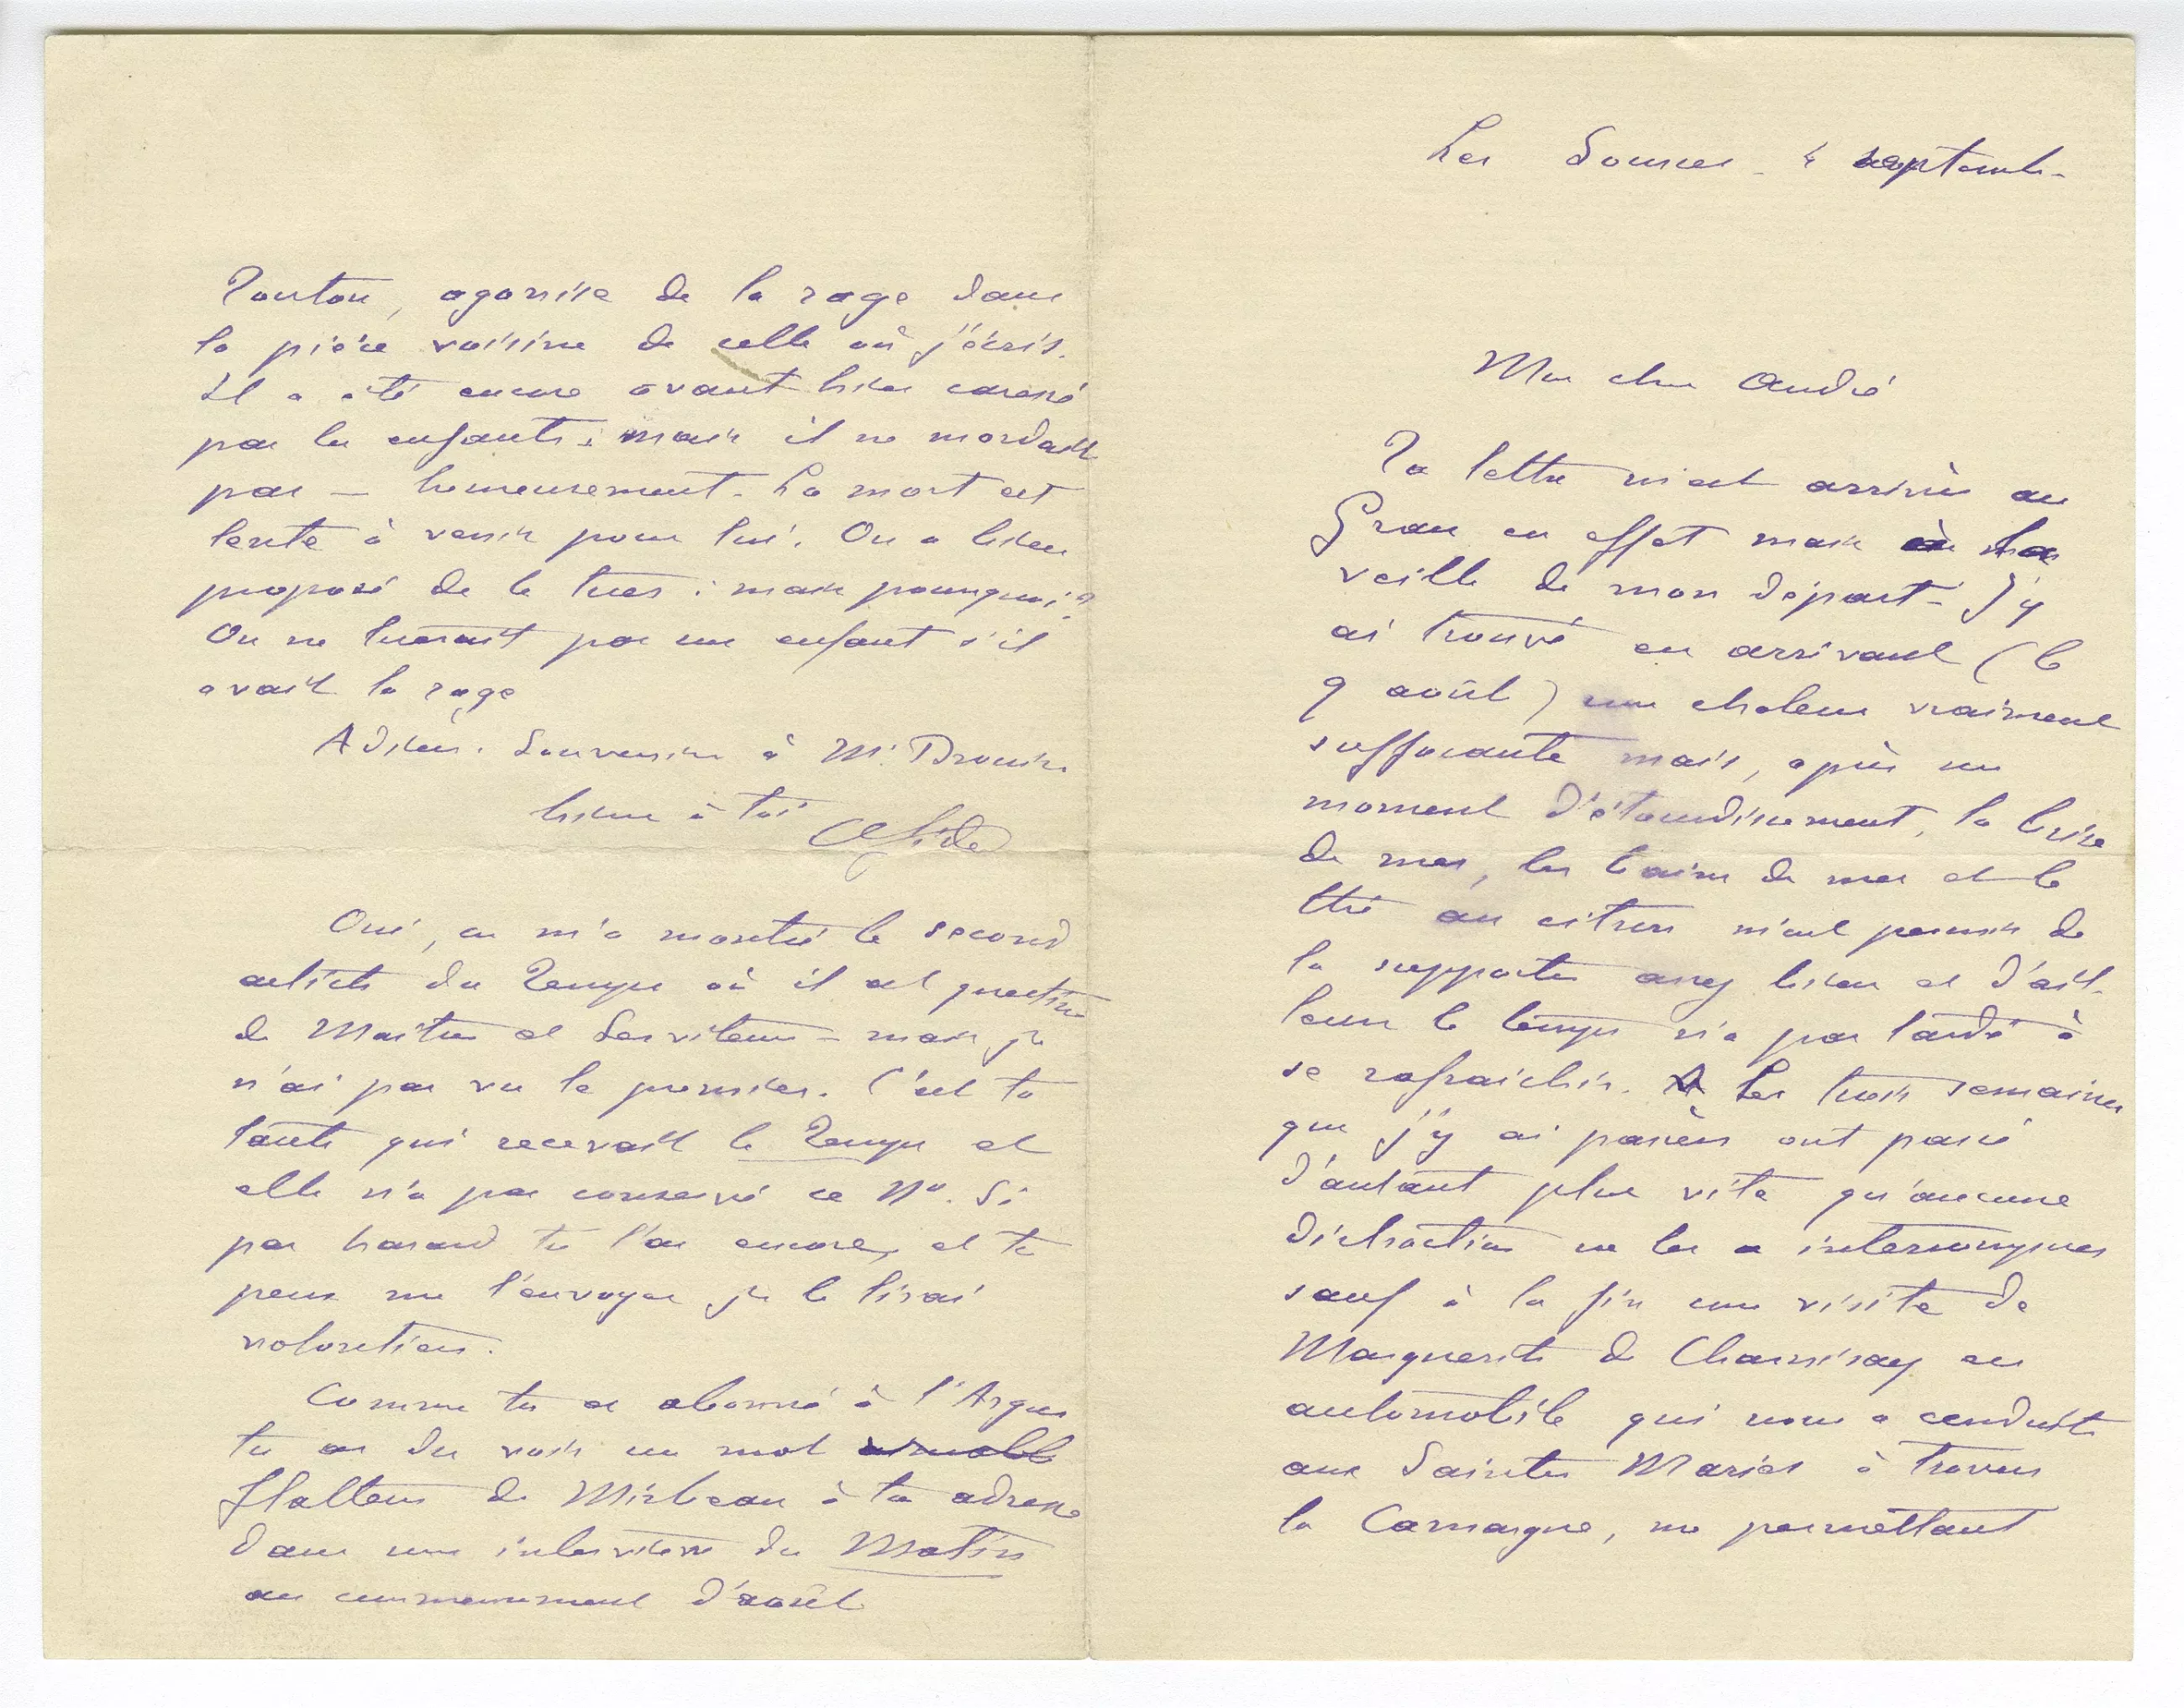 Les Sources - 4 septembre
Mon cher André
Ta lettre m'est arrivée au
Grau en effet mais à la
veille de mon départ - J'y
ai trouvé en arrivant (le
9 août) une chaleur vraiment
suffocante mais, après un
moment d'étourdissement, la brise
de mer, les bains de mer et le
thé au citron m'ont permis de
la supporter assez bien et d'ail-
leurs le temps n'a pas tardé à
se rafraichir. Les trois semaines
que j'y ai passées ont passé
d'autant plus vite qu'aucune
distraction ne les a interrompues
sauf à la fin une visite de
Marguerite de Charnisay en
automobile qui nous a conduits
aux Saintes Maries à travers
la Camargue, me permettant
Toutou, agonise de la rage dans
la pièce voisine de celle où j'écris.
Il a été encore avant hier caressé
par les enfants : mais il ne mordait
pas — heureusement. La mort est
lente à venir pour lui. On a bien
proposé de le tuer : mais pourquoi ?
On ne tuerait pas un enfant s'il
avait la rage
Adieu. Souvenirs à Mr. Drouin
bien à toi ChGide
Oui, on m'a montré le second
article du Temps où il est question
de Maitres et Serviteurs - mais je
n'ai pas vu le premier. C'est ta
tante qui recevait le Temps et
elle n'a pas conservé ce No. Si
par hasard tu l'as encore, et tu
peux me l'envoyer je le lirai
volontiers.
Comme tu es abonné à l'Argus
tu as du voir un mot
flatteur de Mirbeau à ton adresse
dans une interview du Matin
au commencement d'août